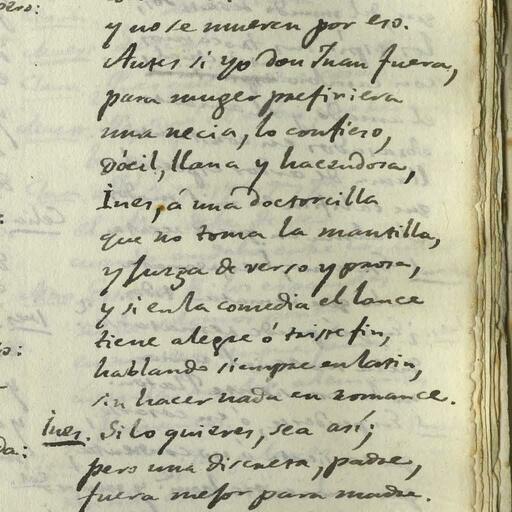 pero:
y no se mueren por eso.
Antes si yo don Juan fuera,
para muger prefiriera
una necia, lo confieso,
dócil, llana y hacendosa,
Ines, á una doctorcilla
que no toma la mantilla,
y juzga de verso y prosa,
y si en la comedia el lance
tiene alegre ó triste fin,
hablando siempre en latin,
sin hacer nada en romance.
Ines. Si lo quieres, sea así;
pero una discreta, padre,
fuera mejor para madre.